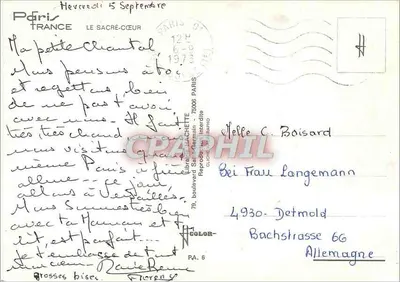 Mercredi 5 Septembre
Paris
FRANCE
LE SACRÉ-CŒUR
PARIS
12H
6-9
1973
Ma petite Chantal,
Nous pensons à toi
et regrettons bien
de ne pas t'avoir
avec nous. Il fait
très très chaud
nous visitons quand
même Paris à
allons à Versailles.
Nous sommes très bien
avec ta Maman et
est parfait
Je t'embrasse de tout
mon cœur.
Grosses bises.
HACHETTE
79, boulevard Saint-Germain 75006 PARIS
Reproduction interdite
COLOR
P.A. 6
CPAPHIL
Melle C. Boisard
Bei Frau Langemann
4930. Detmold
Bachstrasse 66
Allemagne